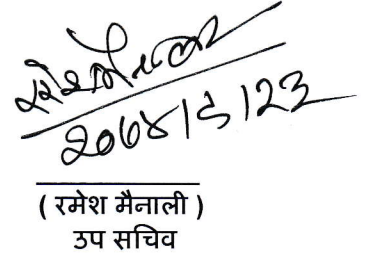 २०७४।८।२३
( रमेश मैनाली )
उप सचिव